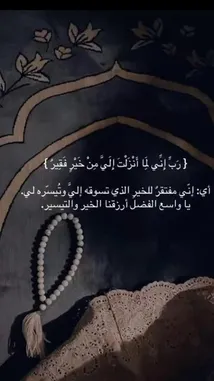 { رَبِّ إِنِّي لِمَا أَنْزَلْتَ إِلَيَّ مِنْ خَيْرٍ فَقِيرٌ }
أي: إنّي مفتقرٌ للخير الذي تسوقه إليَّ وتُيسّره لي.
يا واسع الفضل أرزقنا الخير والتيسير.